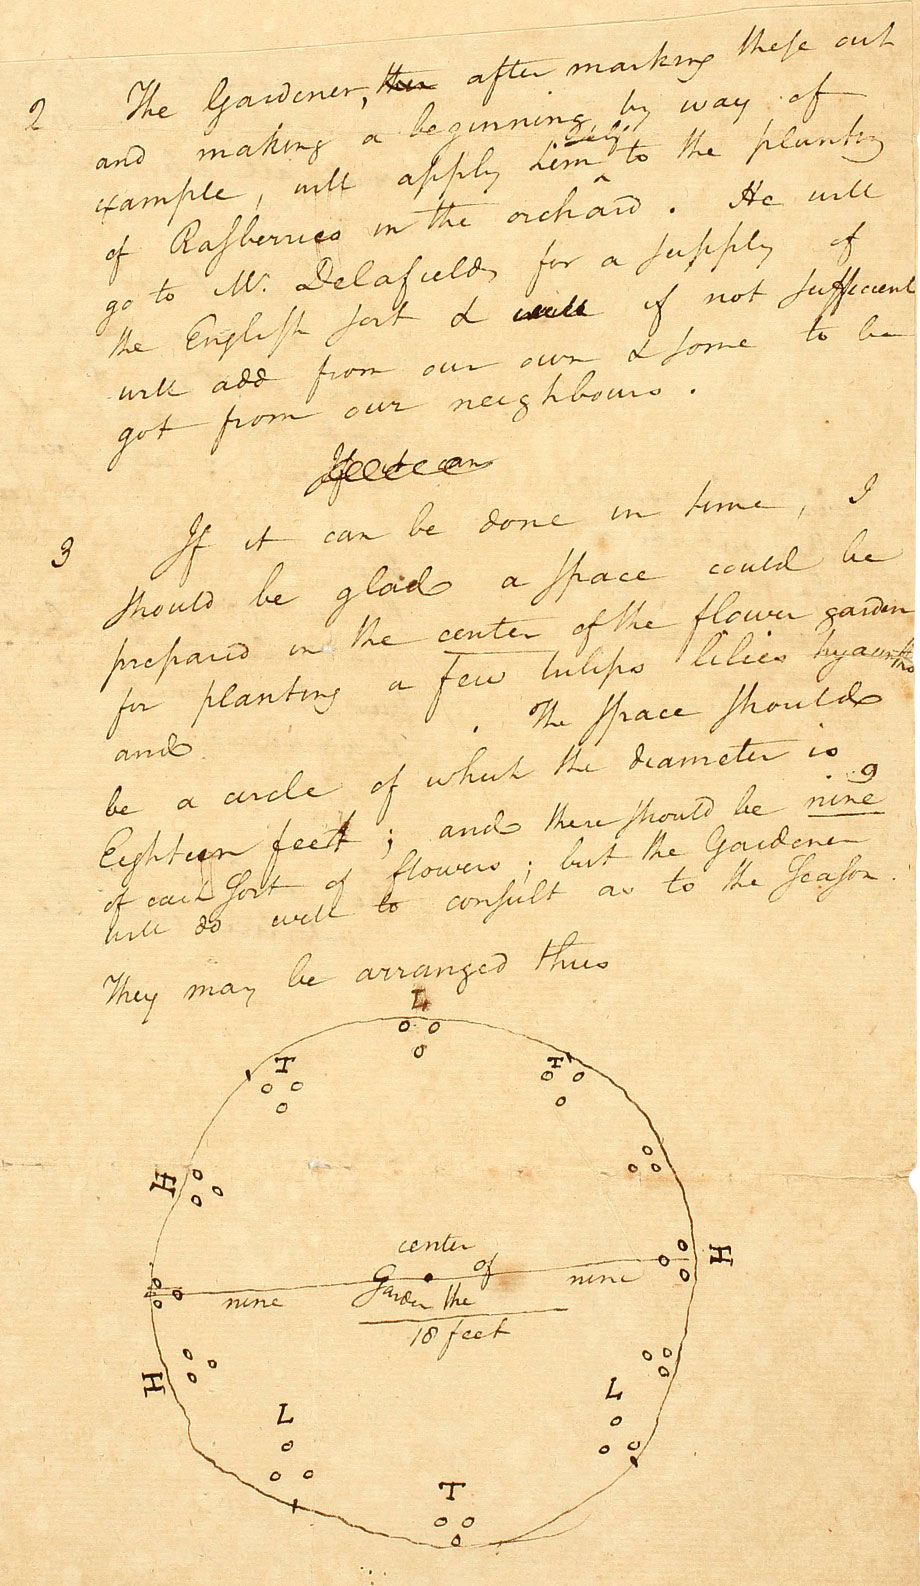 2 The Gardener, then after marking these out
and making a beginning by way of
example, will apply him self to the planting
of Rasberries in the orchard. He will
go to Mr. Delafields for a supply of
the English sort & will if not sufficient
will add from our own & some to be
got from our neighbours.
If it can
3 If it can be done in time, I
should be glad a space could be
prepared in the center of the flower garden
for planting a few tulips lilies hyacinths
and . The space should
be a circle of which the diameter is
Eighteen feet; and there should be nine 9
of each sort of flowers; but the Gardener
will do well to consult as to the Season.
They may be arranged thus
L
T T
H
center
of H
nine Garden the nine
18 feet
H
L L
T